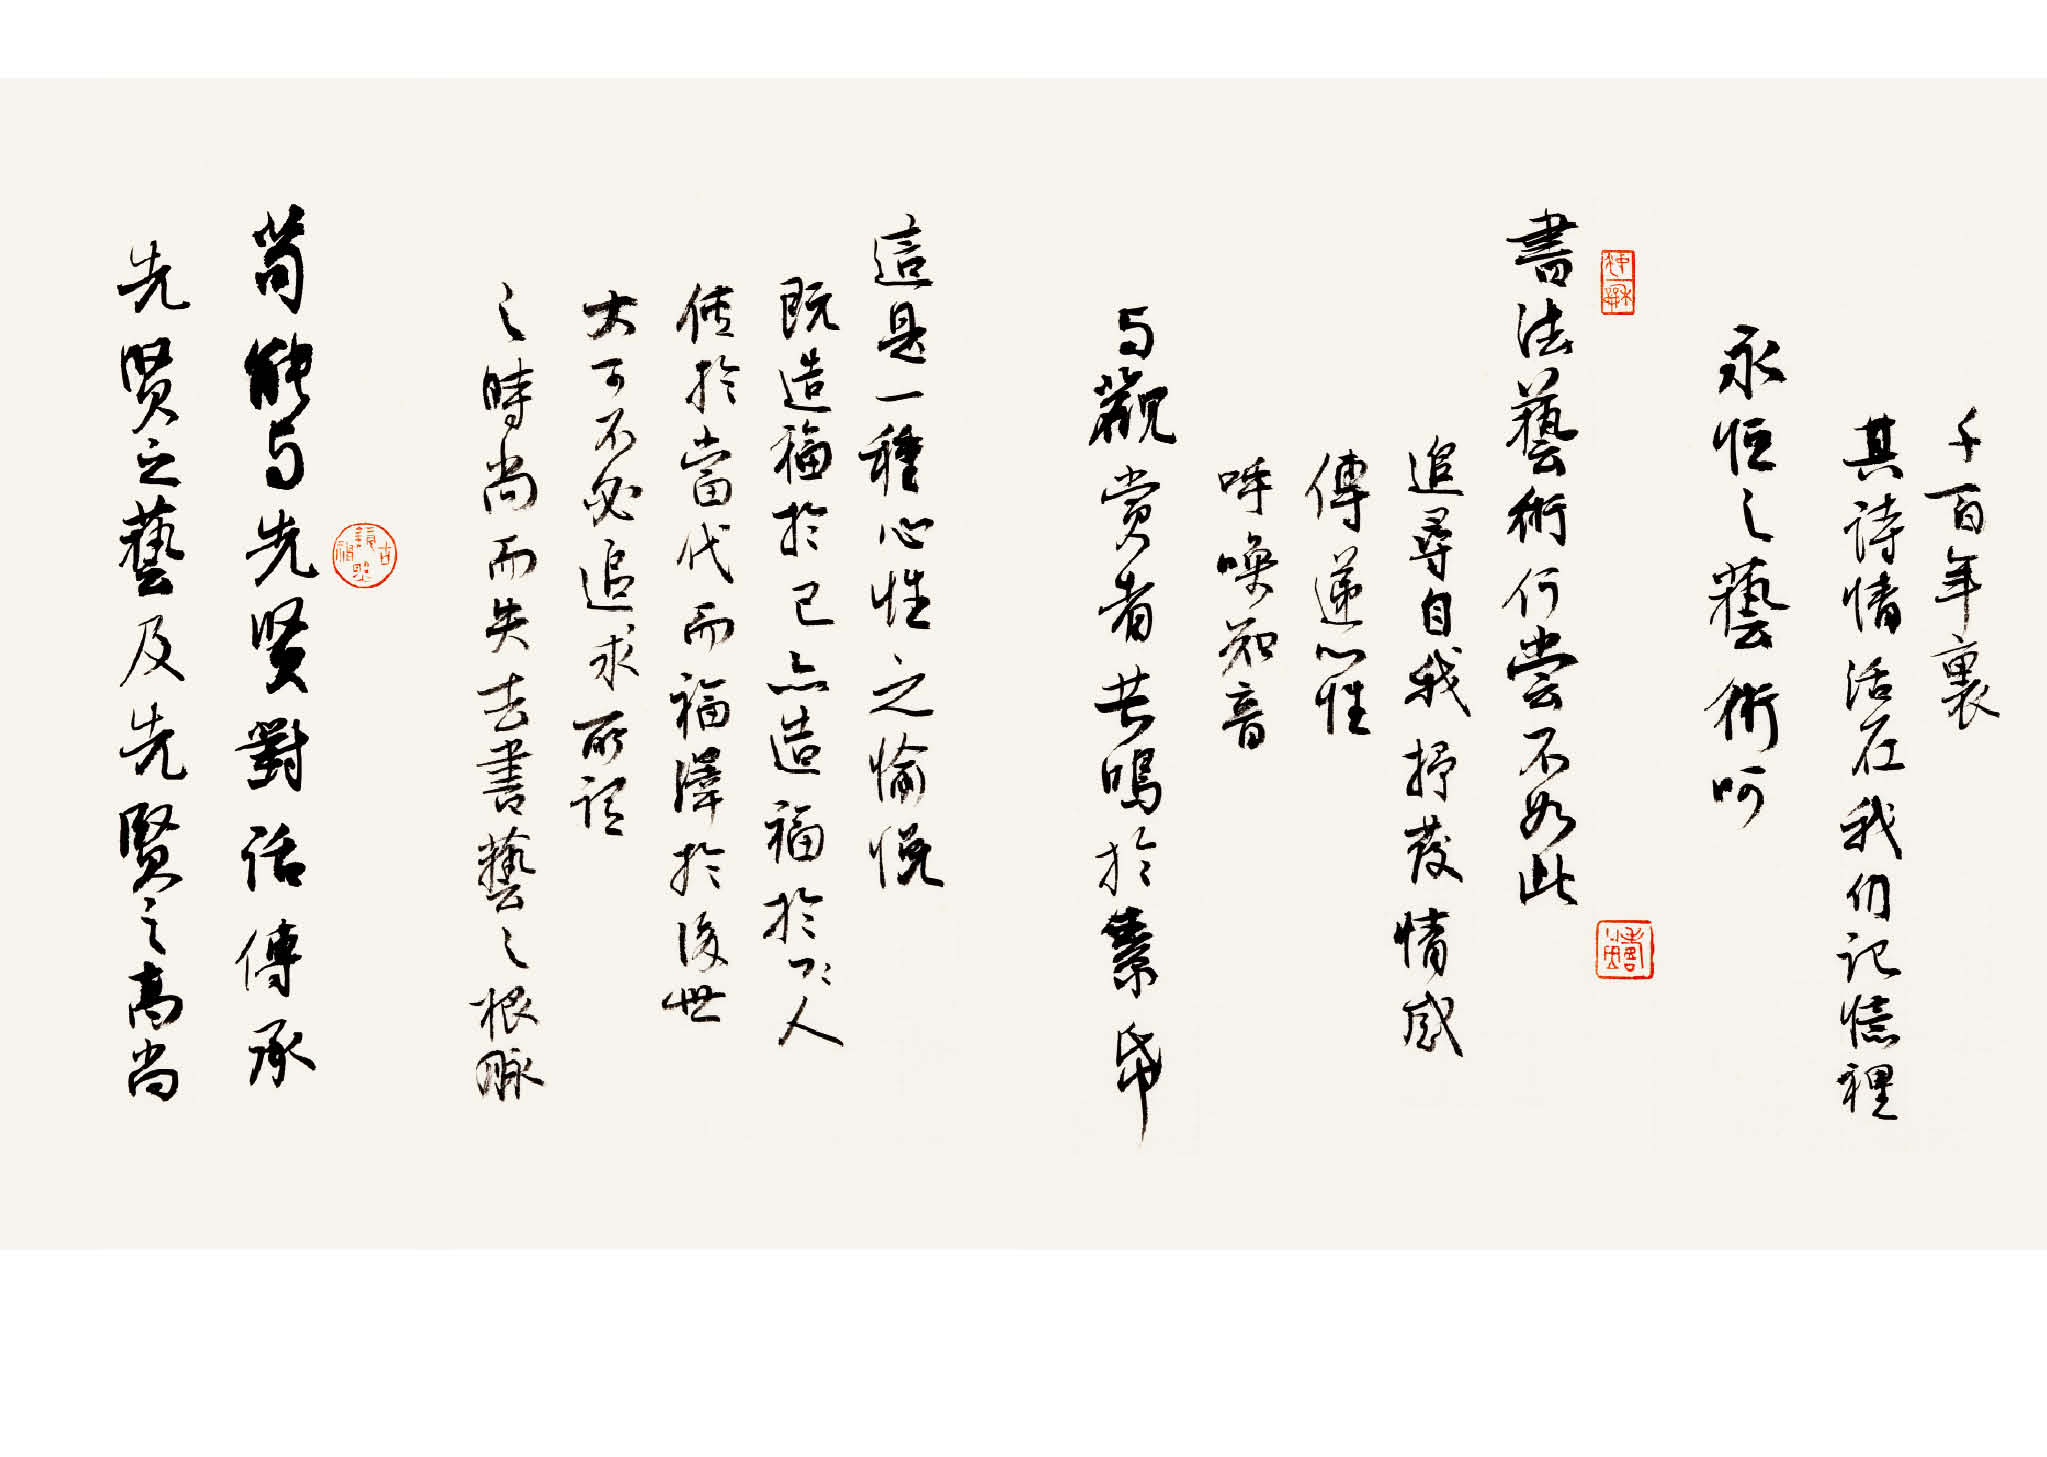 千百年裏
其詩情活在我们记憶裡
永恒之藝術呵
書法藝術何嘗不如此
追尋自我抒發情感
傳遞心性
呼喚知音
与觀賞者共鳴於素帛
這是一種心性之愉悦
既造福於己亦造福於別人
使於當代而福澤於後世
大可不必追求所謂
之時尚而失去書藝之根脉
苟能与先贤對话傳承
先贤之藝及先贤之高尚